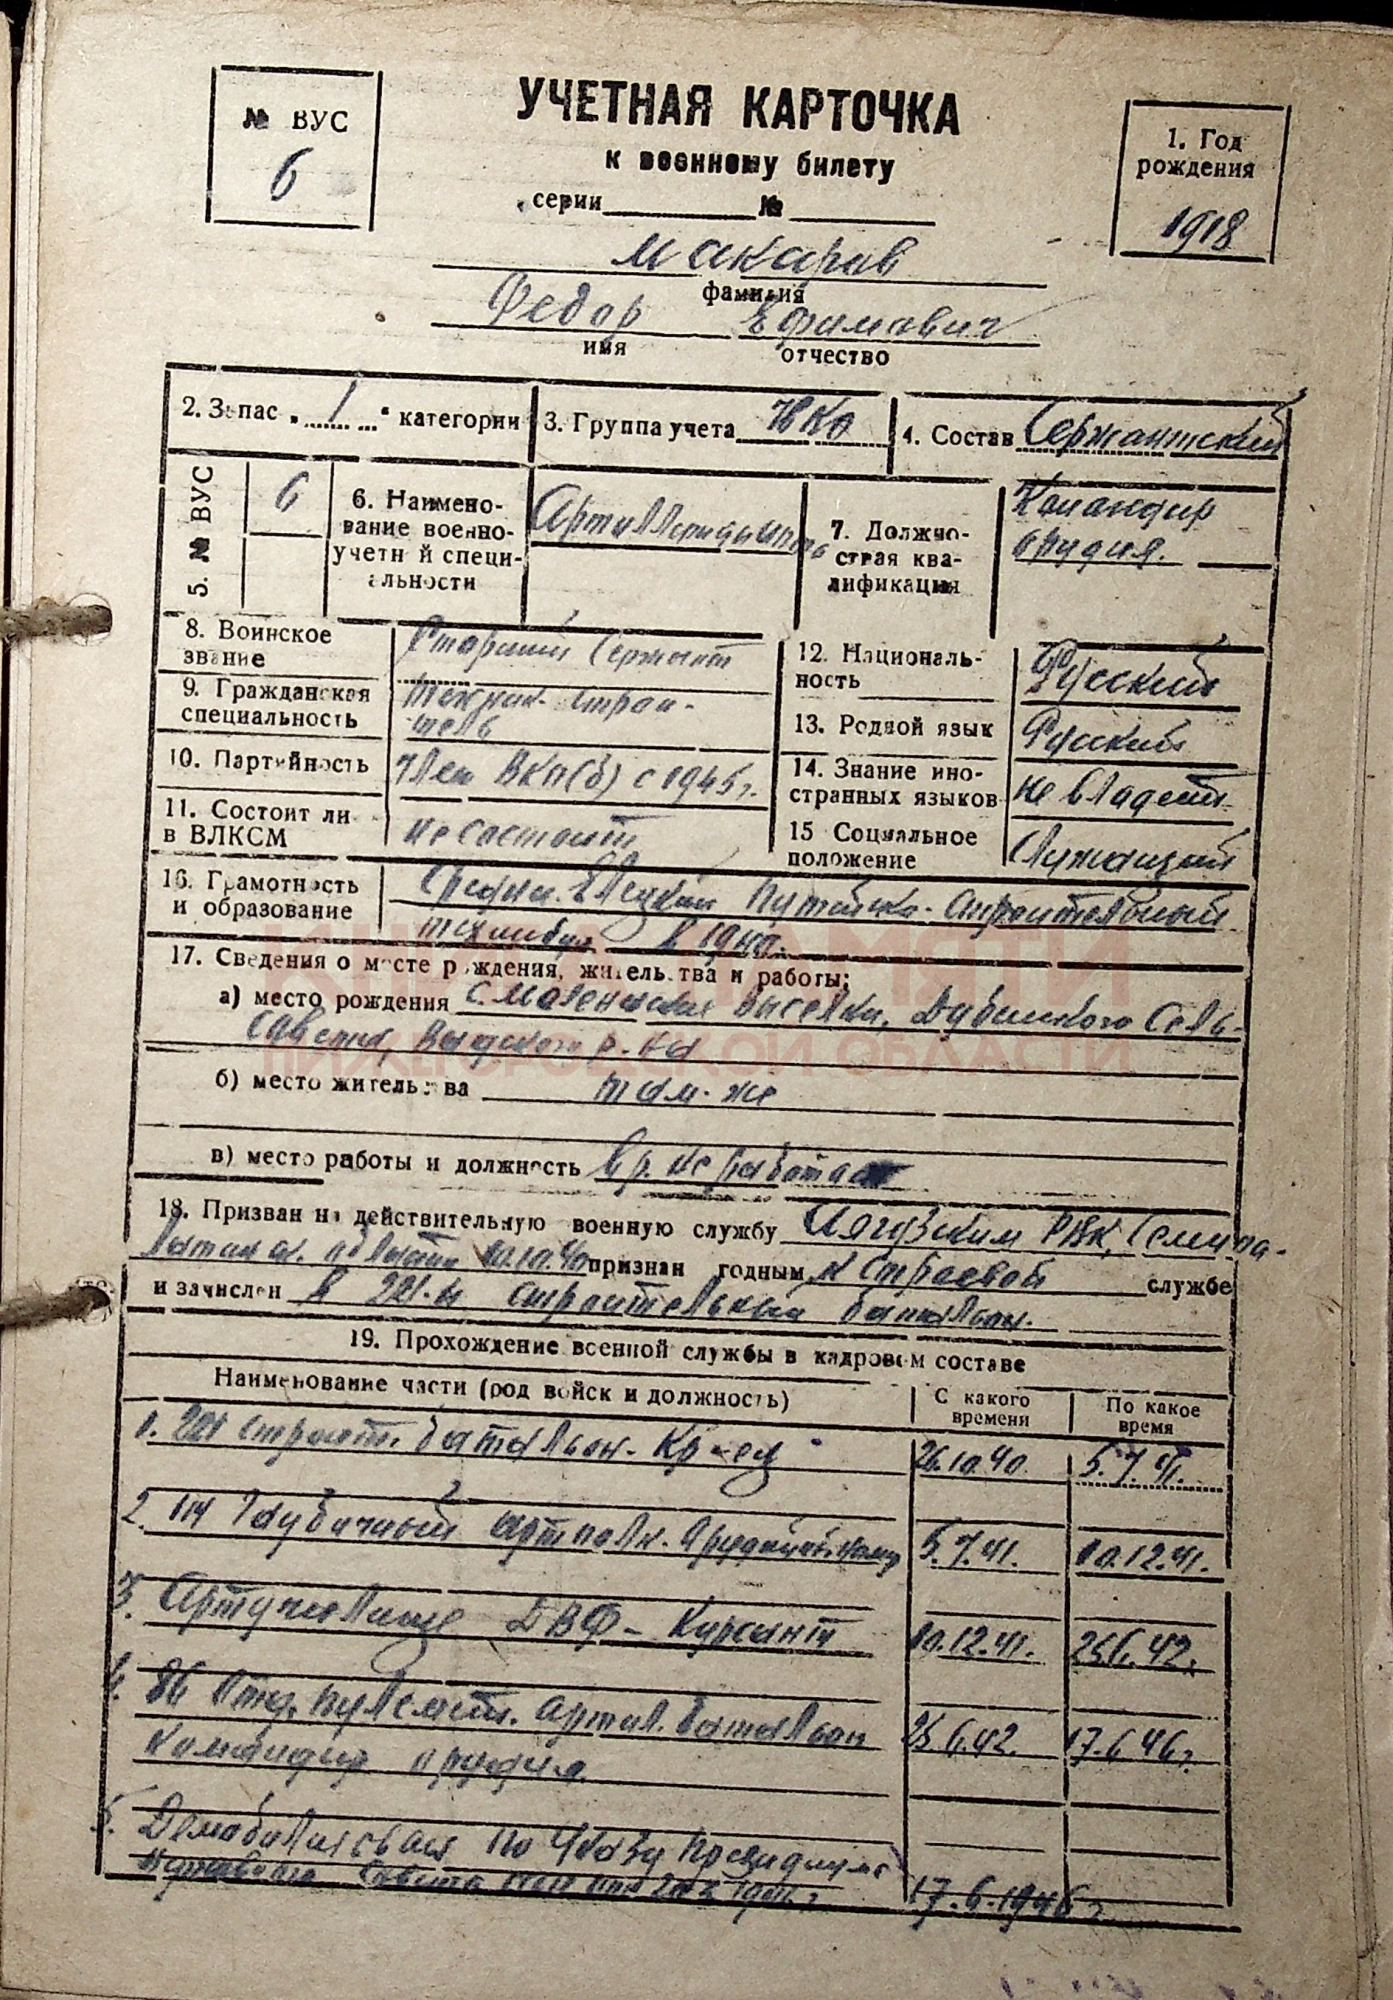 УЧЕТНАЯ КАРТОЧКА
к военному билету
серии № 
№ ВУС
6
1. Год
рождения
1918
Макаров
фамилия
Федор Ефимович
имя отчество
2. Запас „ 1 “ категории 3. Группа учета НКО 4. Состав Сержантский
5. № ВУС 6
6. Наимено-
вание военно-
учетной специ-
альности
Артиллерия
7. Должно-
стная ква-
лификация
Командир
орудия.
8. Воинское
звание
Старший Сержант
9. Гражданская
специальность
Техник-строи-
тель
10. Партийность Член ВКП(б) с 1945 г.
11. Состоит ли
в ВЛКСМ
не состоит
12. Националь-
ность
Русский
13. Родной язык Русский
14. Знание ино-
странных языков
не владеет
15 Социальное
положение
Служащий
16. Грамотность
и образование
Средн. Елецкий Путейско-строительный
техникум в 1940.
КНИГА ПАМЯТИ
НИЖЕГОРОДСКОЙ ОБЛАСТИ
17. Сведения о месте рождения, жительства и работы:
а) место рождения с. выселки, Сель-
совета, р-на
б) место жительства там-же
в) место работы и должность вр. не работает
18. Призван на действительную военную службу Аягузским РВК, Семипа-
латинск. области 10.10.40 признан годным к строевой службе
и зачислен в 221-й строительный батальон.
19. Прохождение военной службы в кадровом составе
Наименование части (род войск и должность)
С какого
времени
По какое
время
1. 221 строит. батальон. Кр-ец 26.10.40. 5.7.41.
2. Гаубичный артполк. 5.7.41. 10.12.41.
3. Артучилище ДВФ - Курсант 10.12.41. 25.6.42.
4. 86 Отд. пулемет. артил. батальон 25.6.42. 17.6.46 г.
командир орудия.
5. Демобилизован по Указу Президиума
Верховного Совета 17.6.1946 г.